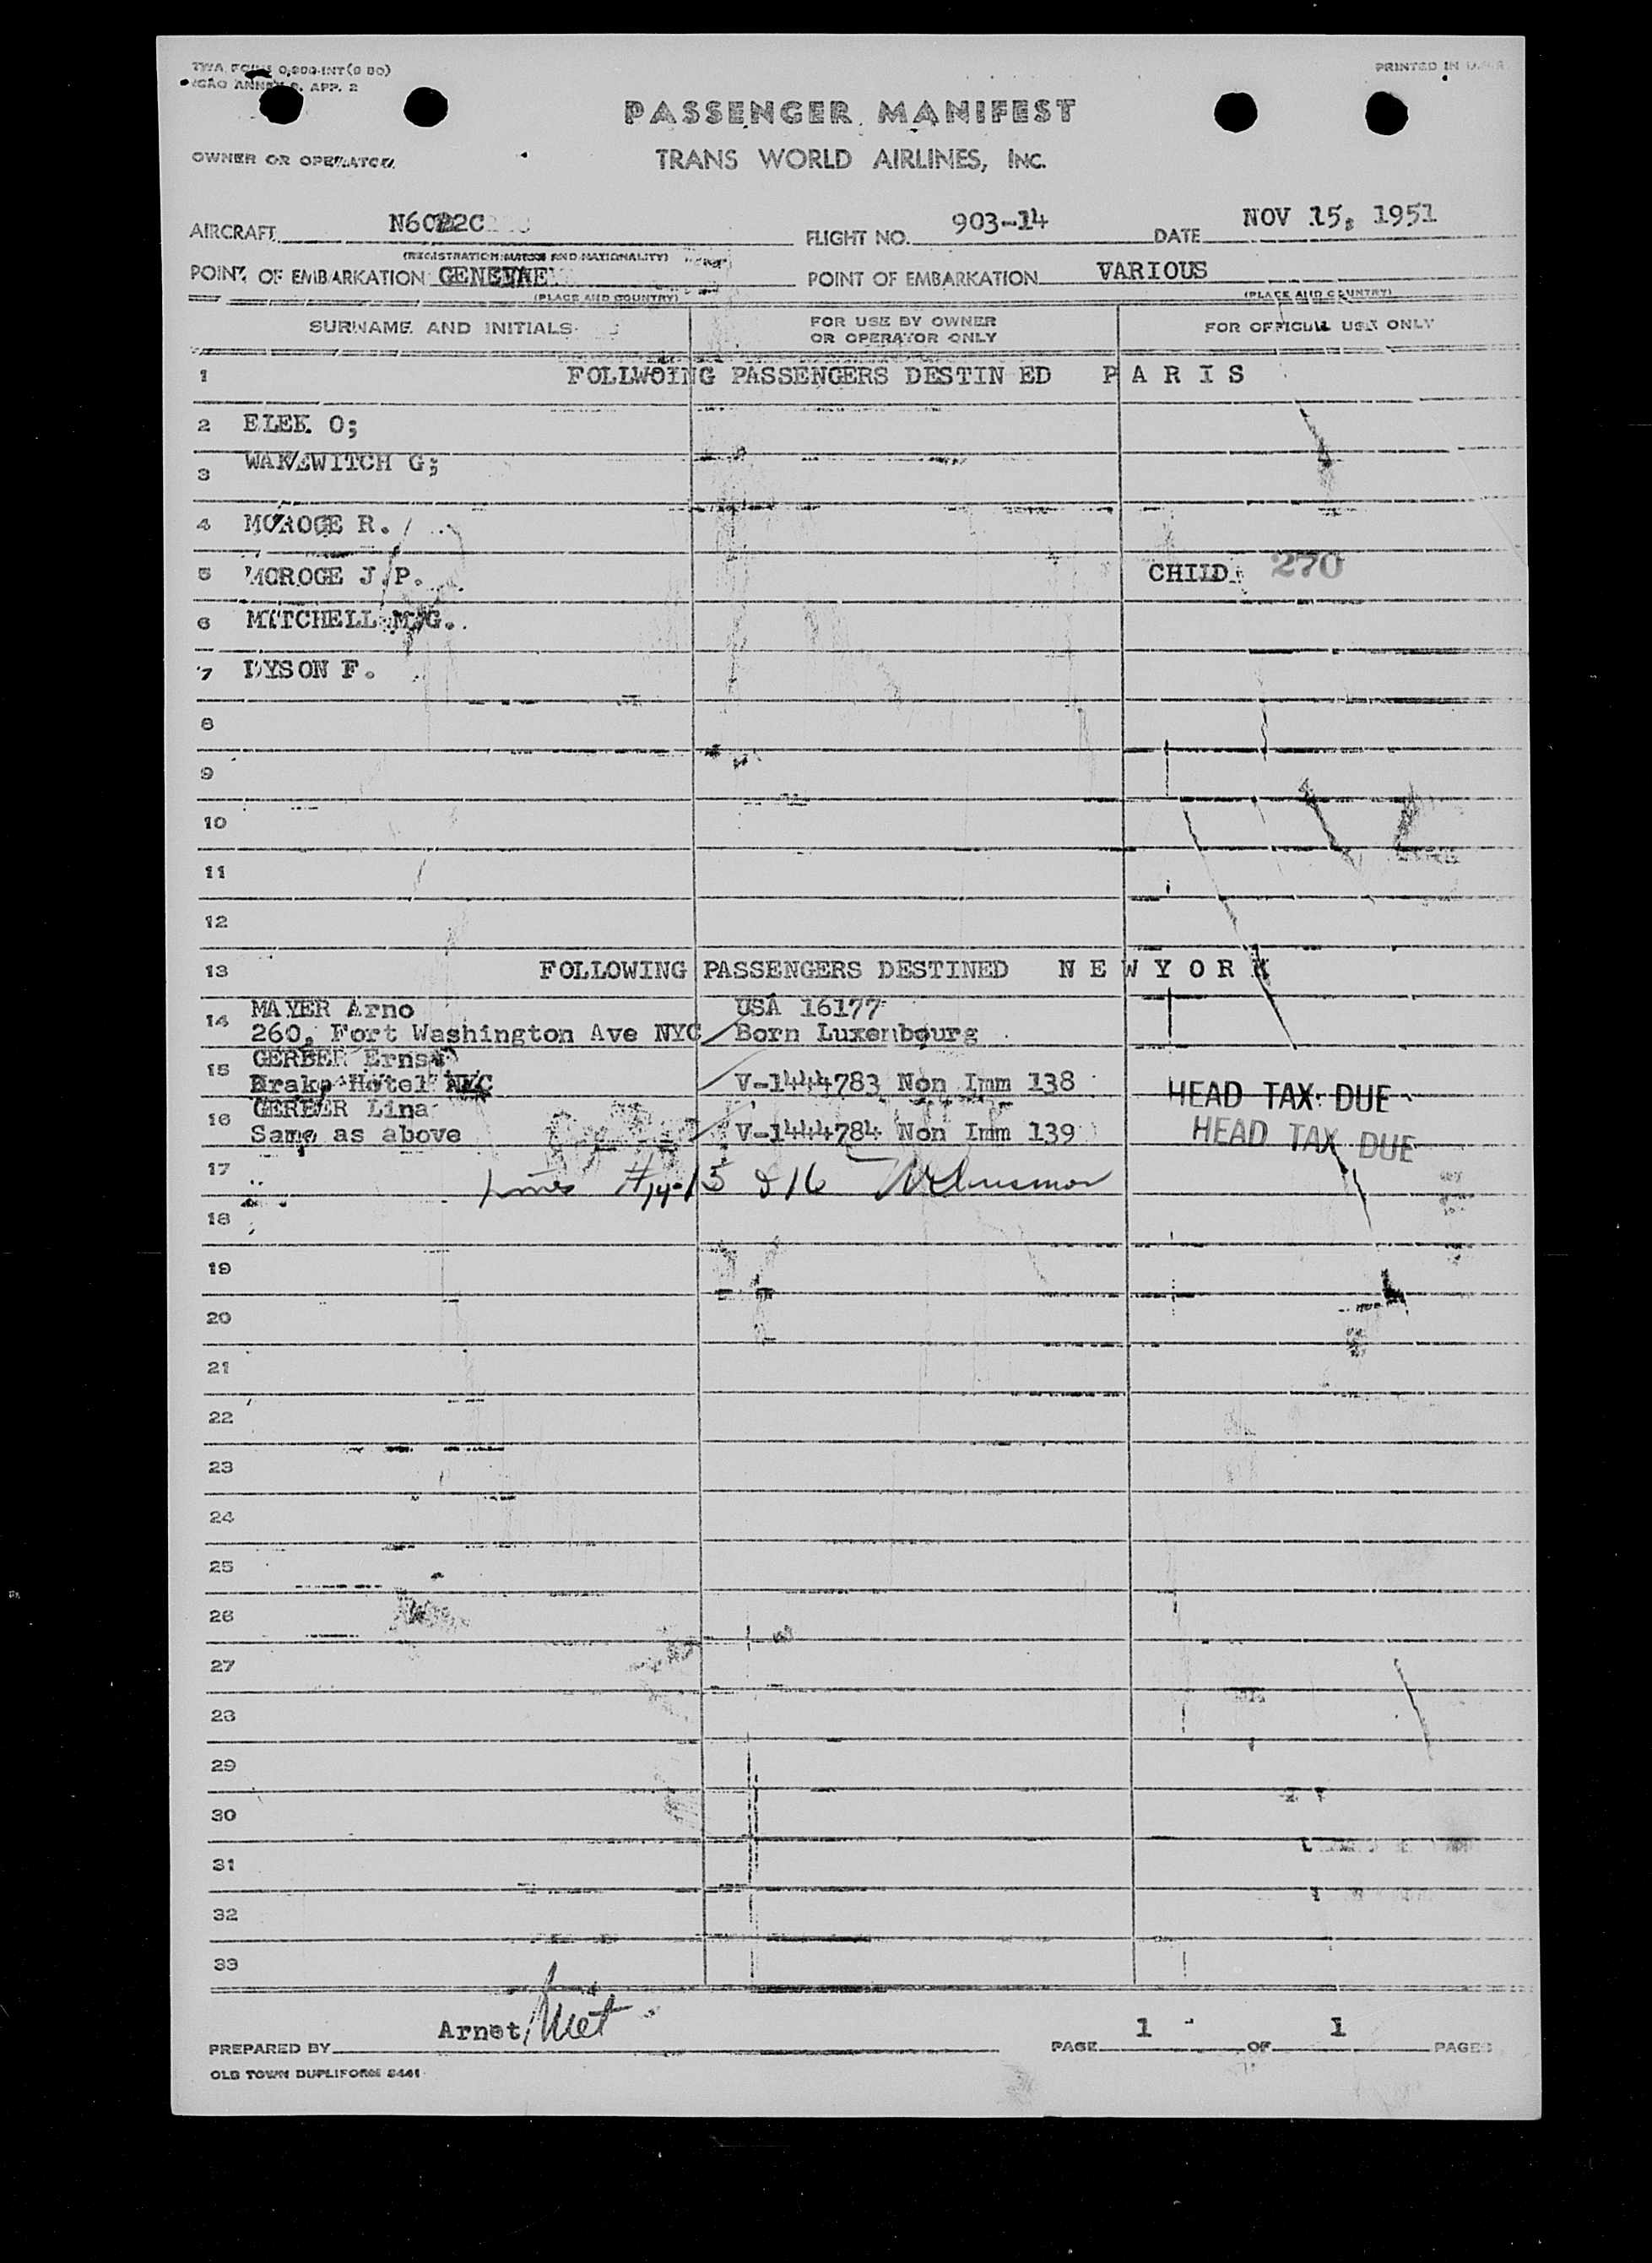 TWA FORM 0,900-INT(8 50)
PRINTED IN U.S.A.
ICAO ANNEX 9, APP. 2
PASSENGER MANIFEST
OWNER OR OPERATOR
TRANS WORLD AIRLINES, INC.
AIRCRAFT FLIGHT NO. 903-14 DATE NOV 15, 1951
(REGISTRATION MARKS AND NATIONALITY)
POINT OF EMBARKATION POINT OF EMBARKATION VARIOUS
(PLACE AND COUNTRY) (PLACE AND COUNTRY)
SURNAME AND INITIALS FOR USE BY OWNER OR OPERATOR ONLY FOR OFFICIAL USE ONLY
1 FOLLWOING PASSENGERS DESTIN ED P A R I S
2 ELEK O;
3 G;
4 MOROGE R.
5 MOROGE J.P. CHILD 270
6 MITCHELL M.G.
7 DYSON F.
8
9
10
11
12
13 FOLLOWING PASSENGERS DESTINED N E W Y O R K
14 MAYER Arno USA 16177
260, Fort Washington Ave NYC Born Luxembourg
15 GERBER Ernst
Drake Hotel NYC V-1444783 Non Imm 138 HEAD TAX DUE
16 GERBER Lina
Same as above V-1444784 Non Imm 139 HEAD TAX DUE
17 Lines #14-15 & 16
18
19
20
21
22
23
24
25
26
27
28
29
30
31
32
33
PREPARED BY Arnet PAGE 1 OF 1 PAGES
OLD TOWN DUPLIFORM 5441